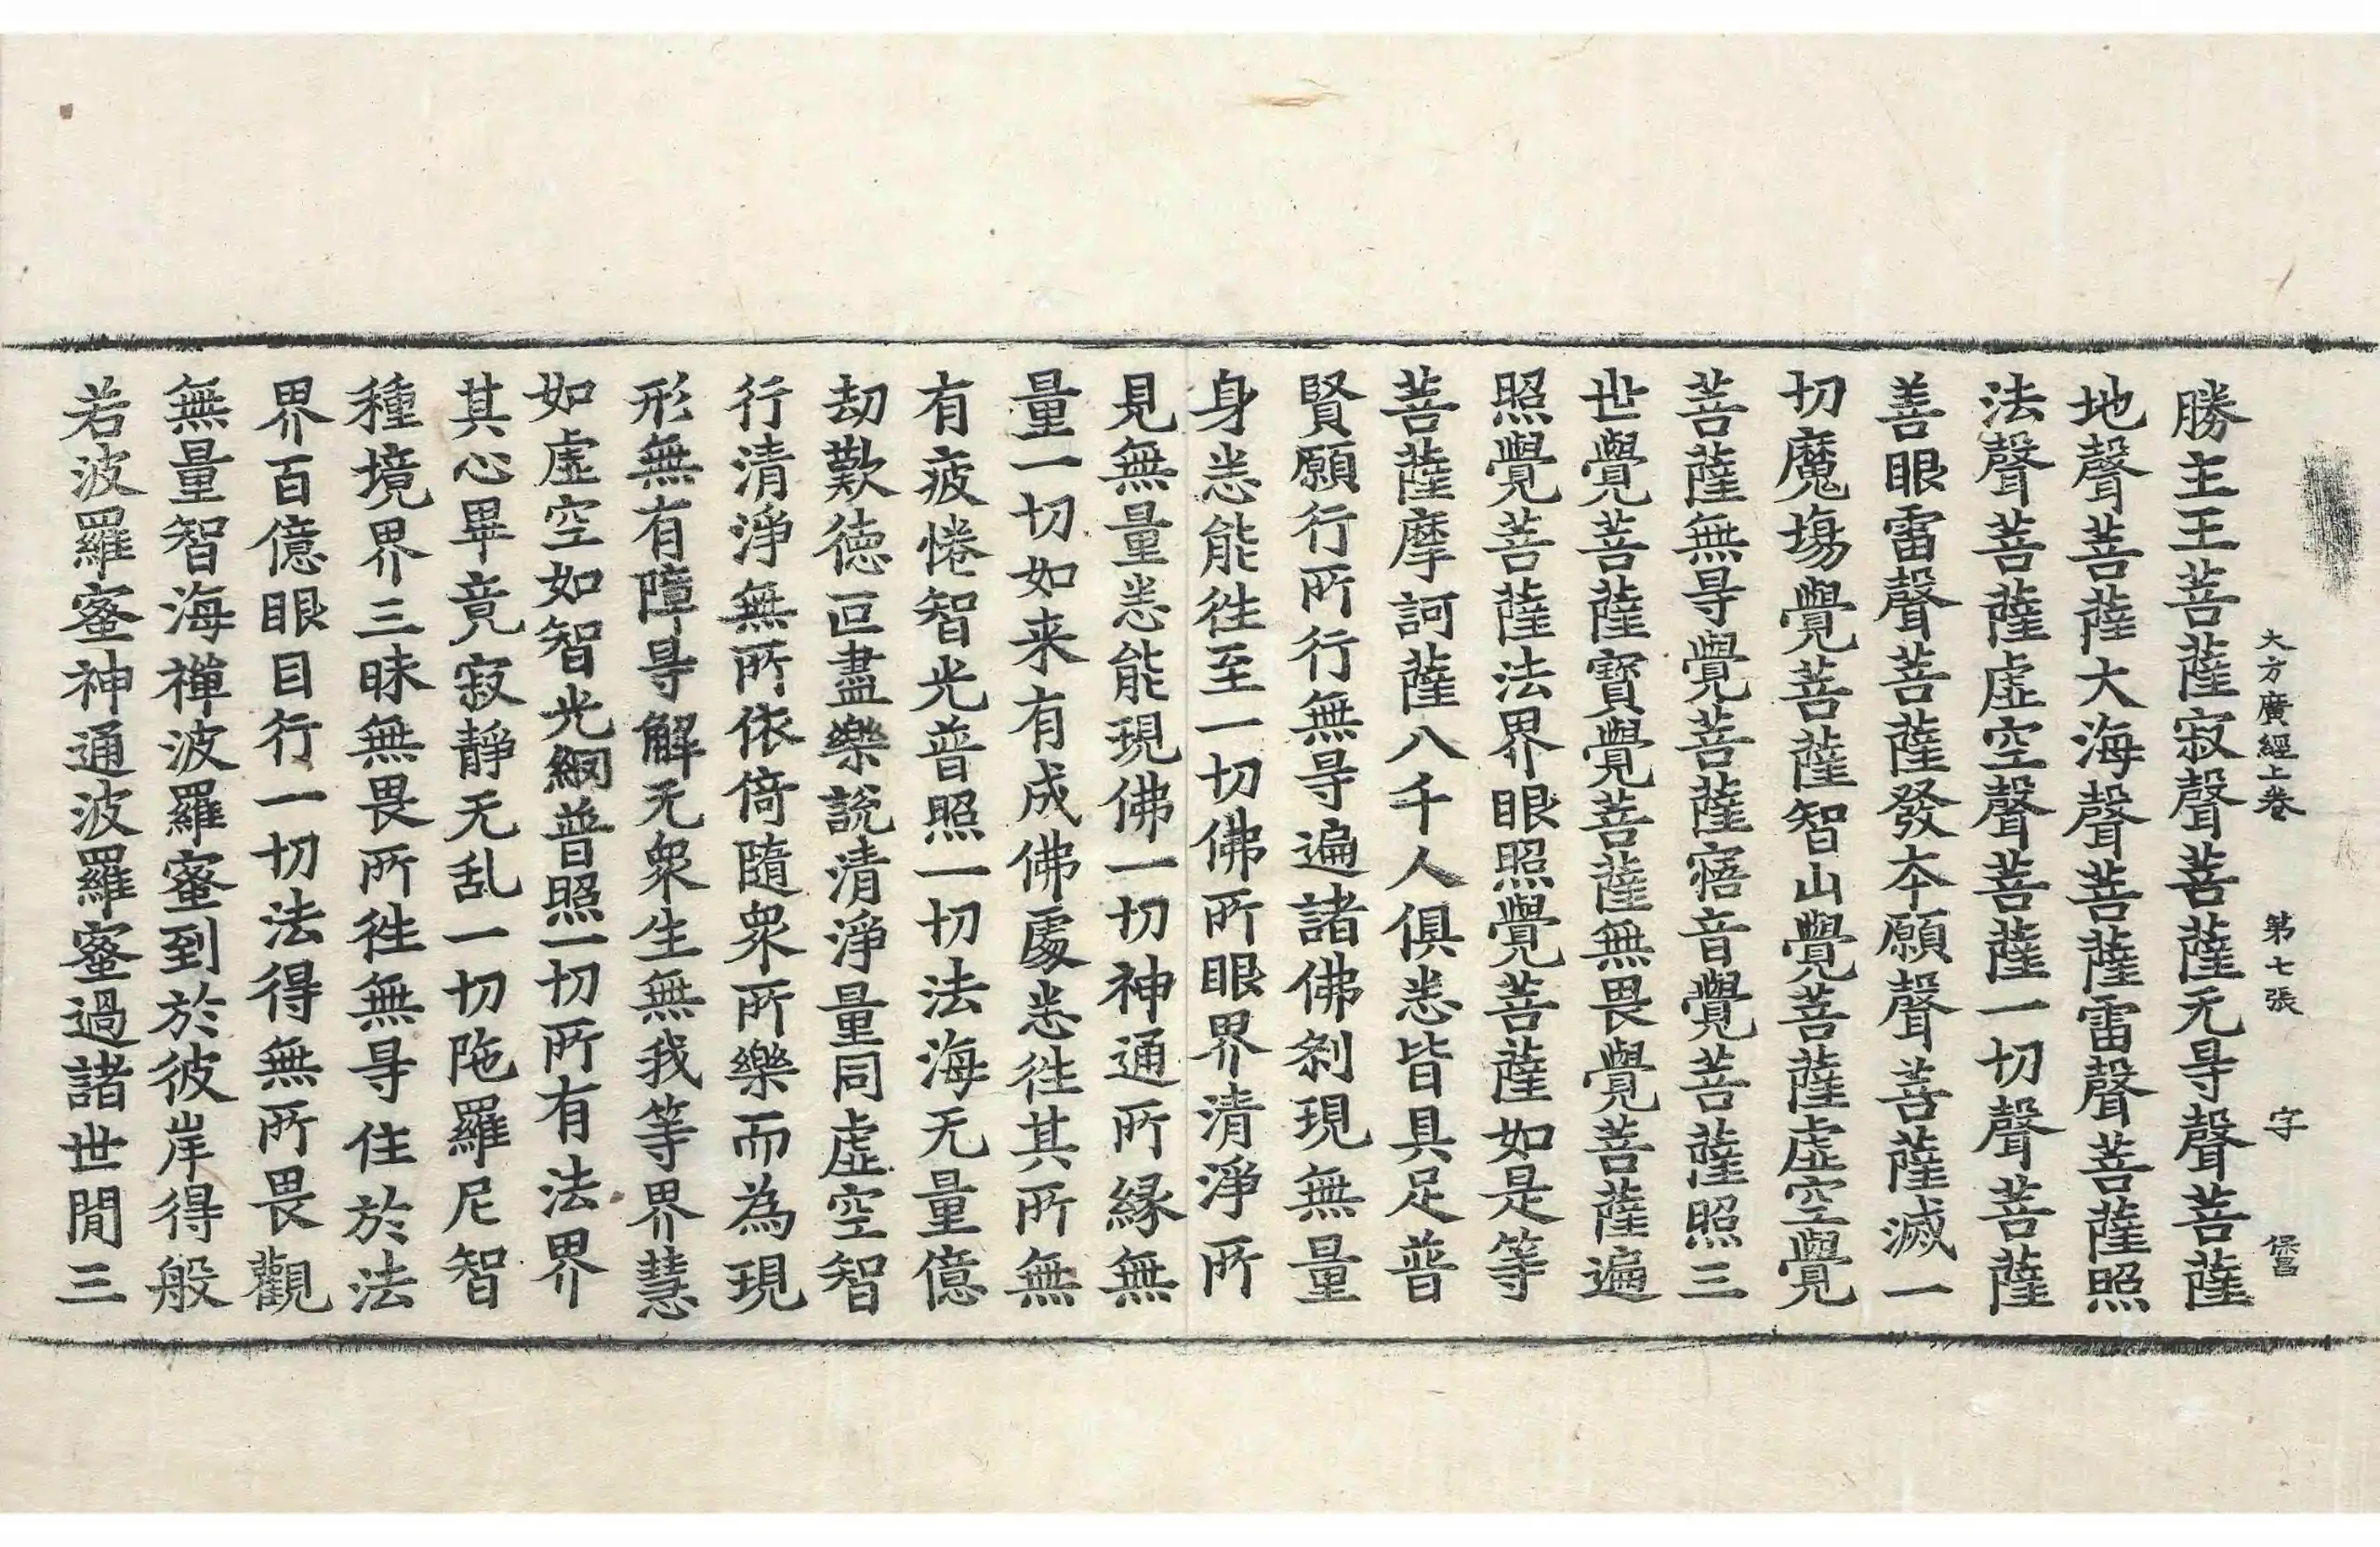 大方廣經上卷 第七張 字
勝主王菩薩寂聲菩薩无㝵聲菩薩
地聲菩薩大海聲菩薩雷聲菩薩照
法聲菩薩虛空聲菩薩一切聲菩薩
善眼雷聲菩薩發夲願聲菩薩滅一
切魔塲覺菩薩智山覺菩薩虛空覺
菩薩無㝵覺菩薩寤音覺菩薩照三
世覺菩薩寶覺菩薩無畏覺菩薩遍
照覺菩薩法界眼照覺菩薩如是等
菩薩摩訶薩八千人俱悉皆具足普
賢願行所行無㝵遍諸佛剎現無量
身悉能徃至一切佛所眼界清淨所
見無量悉能現佛一切神通所緣無
量一切如来有成佛處悉徃其所無
有疲惓智光普照一切法海无量億
劫歎德叵盡樂說清淨量同虛空智
行清淨無所依倚隨衆所樂而為現
形無有障㝵解无衆生無我等界慧
如虛空如智光網普照一切所有法界
其心畢竟寂靜无乱一切陁羅尼智
種境界三昧無畏所徃無㝵住於法
界百億眼目行一切法得無所畏觀
無量智海禪波羅蜜到於彼岸得般
若波羅蜜神通波羅蜜過諸世間三